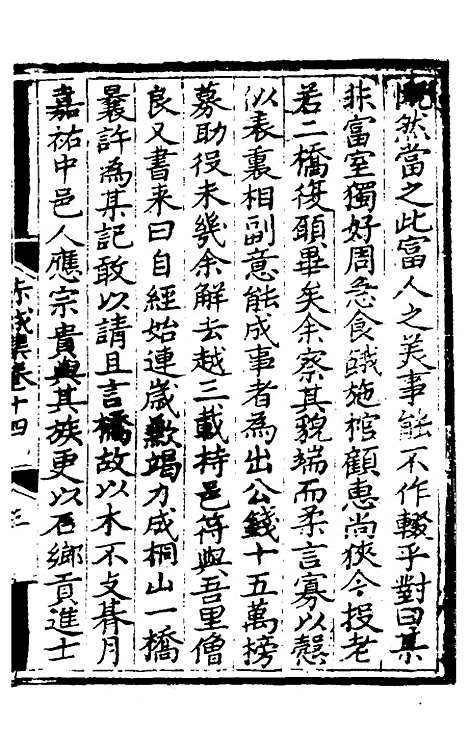 然當之此富人之美事能不作輟乎對曰某
非富室獨好周急食餓施棺顧惠尚狹今投老
若二橋復願畢矣余察其貌端而柔言寡以慤
似表裏相副意能成事者為出公錢十五萬榜
募助役未幾余解去越三載持邑符與吾里僧
良又書来曰自經始連歲數竭力成桐山一橋
曩許為某記敢以請且言橋故以木不支朞月
嘉祐中邑人應宗貴與其族更以石鄉貢進士
赤城集卷十四
三